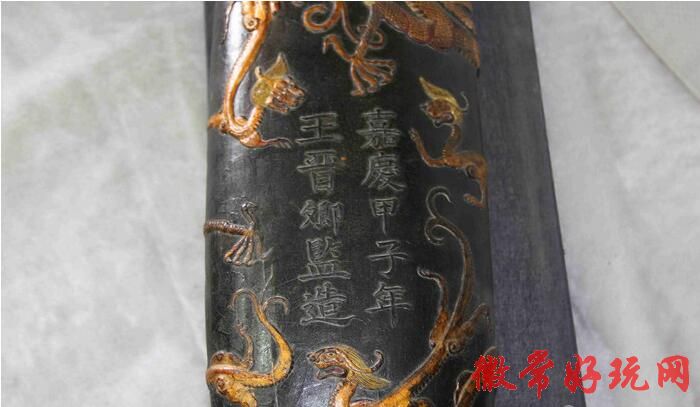 嘉慶甲子年
王晉卿監造
徽常好玩网